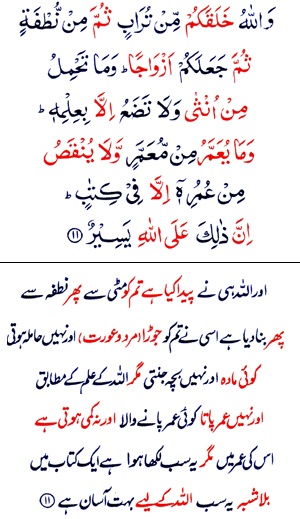 وَاللّٰهُ خَلَقَكُمْ مِّنْ تُرَابٍ ثُمَّ مِنْ نُّطْفَةٍ
ثُمَّ جَعَلَكُمْ اَزْوَاجًا ؕ وَمَا تَحْمِلُ
مِنْ اُنْثٰى وَلَا تَضَعُ اِلَّا بِعِلْمِهٖ ؕ
وَمَا يُعَمَّرُ مِنْ مُّعَمَّرٍ وَّلَا يُنْقَصُ
مِنْ عُمُرِهٖۤ اِلَّا فِىْ كِتٰبٍ ؕ
اِنَّ ذٰلِكَ عَلَى اللّٰهِ يَسِيْرٌ ﴿۱۱﴾
اور اللہ ہی نے پیدا کیا ہے تم کو مٹی سے پھر نطفہ سے
پھر بنا دیا ہے اسی نے تم کو جوڑا (مرد و عورت) اور نہیں حاملہ ہوتی
کوئی مادہ اور نہیں بچہ جنتی مگر اللہ کے علم کے مطابق
اور نہیں عمر پاتا کوئی عمر پانے والا اور نہ کمی ہوتی ہے
اس کی عمر میں مگر یہ سب لکھا ہوا ہے ایک کتاب میں
بلاشبہ یہ سب اللہ کے لیے بہت آسان ہے ﴿۱۱﴾